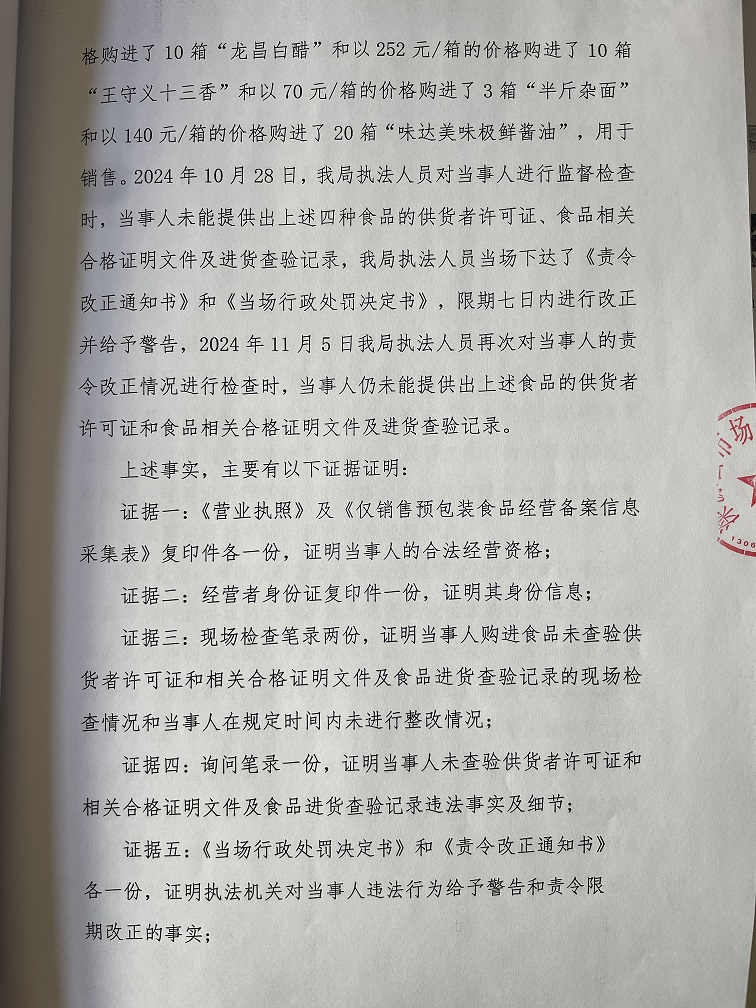 格购进了 10 箱“龙昌白醋”和以 252 元/箱的价格购进了 10 箱
“王守义十三香”和以 70 元/箱的价格购进了 3 箱“半斤杂面”
和以 140 元/箱的价格购进了 20 箱“味达美味极鲜酱油”，用于
销售。2024 年 10 月 28 日，我局执法人员对当事人进行监督检查
时，当事人未能提供出上述四种食品的供货者许可证、食品相关
合格证明文件及进货查验记录，我局执法人员当场下达了《责令
改正通知书》和《当场行政处罚决定书》，限期七日内进行改正
并给予警告，2024 年 11 月 5 日我局执法人员再次对当事人的责
令改正情况进行检查时，当事人仍未能提供出上述食品的供货者
许可证和食品相关合格证明文件及进货查验记录。
上述事实，主要有以下证据证明：
证据一：《营业执照》及《仅销售预包装食品经营备案信息
采集表》复印件各一份，证明当事人的合法经营资格；
证据二：经营者身份证复印件一份，证明其身份信息；
证据三：现场检查笔录两份，证明当事人购进食品未查验供
货者许可证和相关合格证明文件及食品进货查验记录的现场检
查情况和当事人在规定时间内未进行整改情况；
证据四：询问笔录一份，证明当事人未查验供货者许可证和
相关合格证明文件及食品进货查验记录违法事实及细节；
证据五：《当场行政处罚决定书》和《责令改正通知书》
各一份，证明执法机关对当事人违法行为给予警告和责令限
期改正的事实；
场
1306